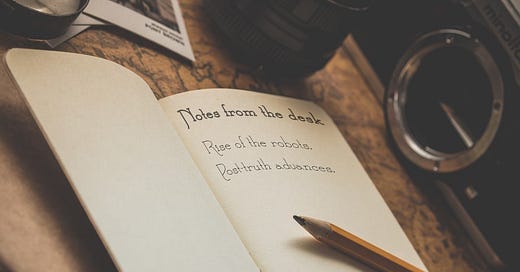 Notes from the desk.
Rise of the robots.
Post-truth advances.
minolta